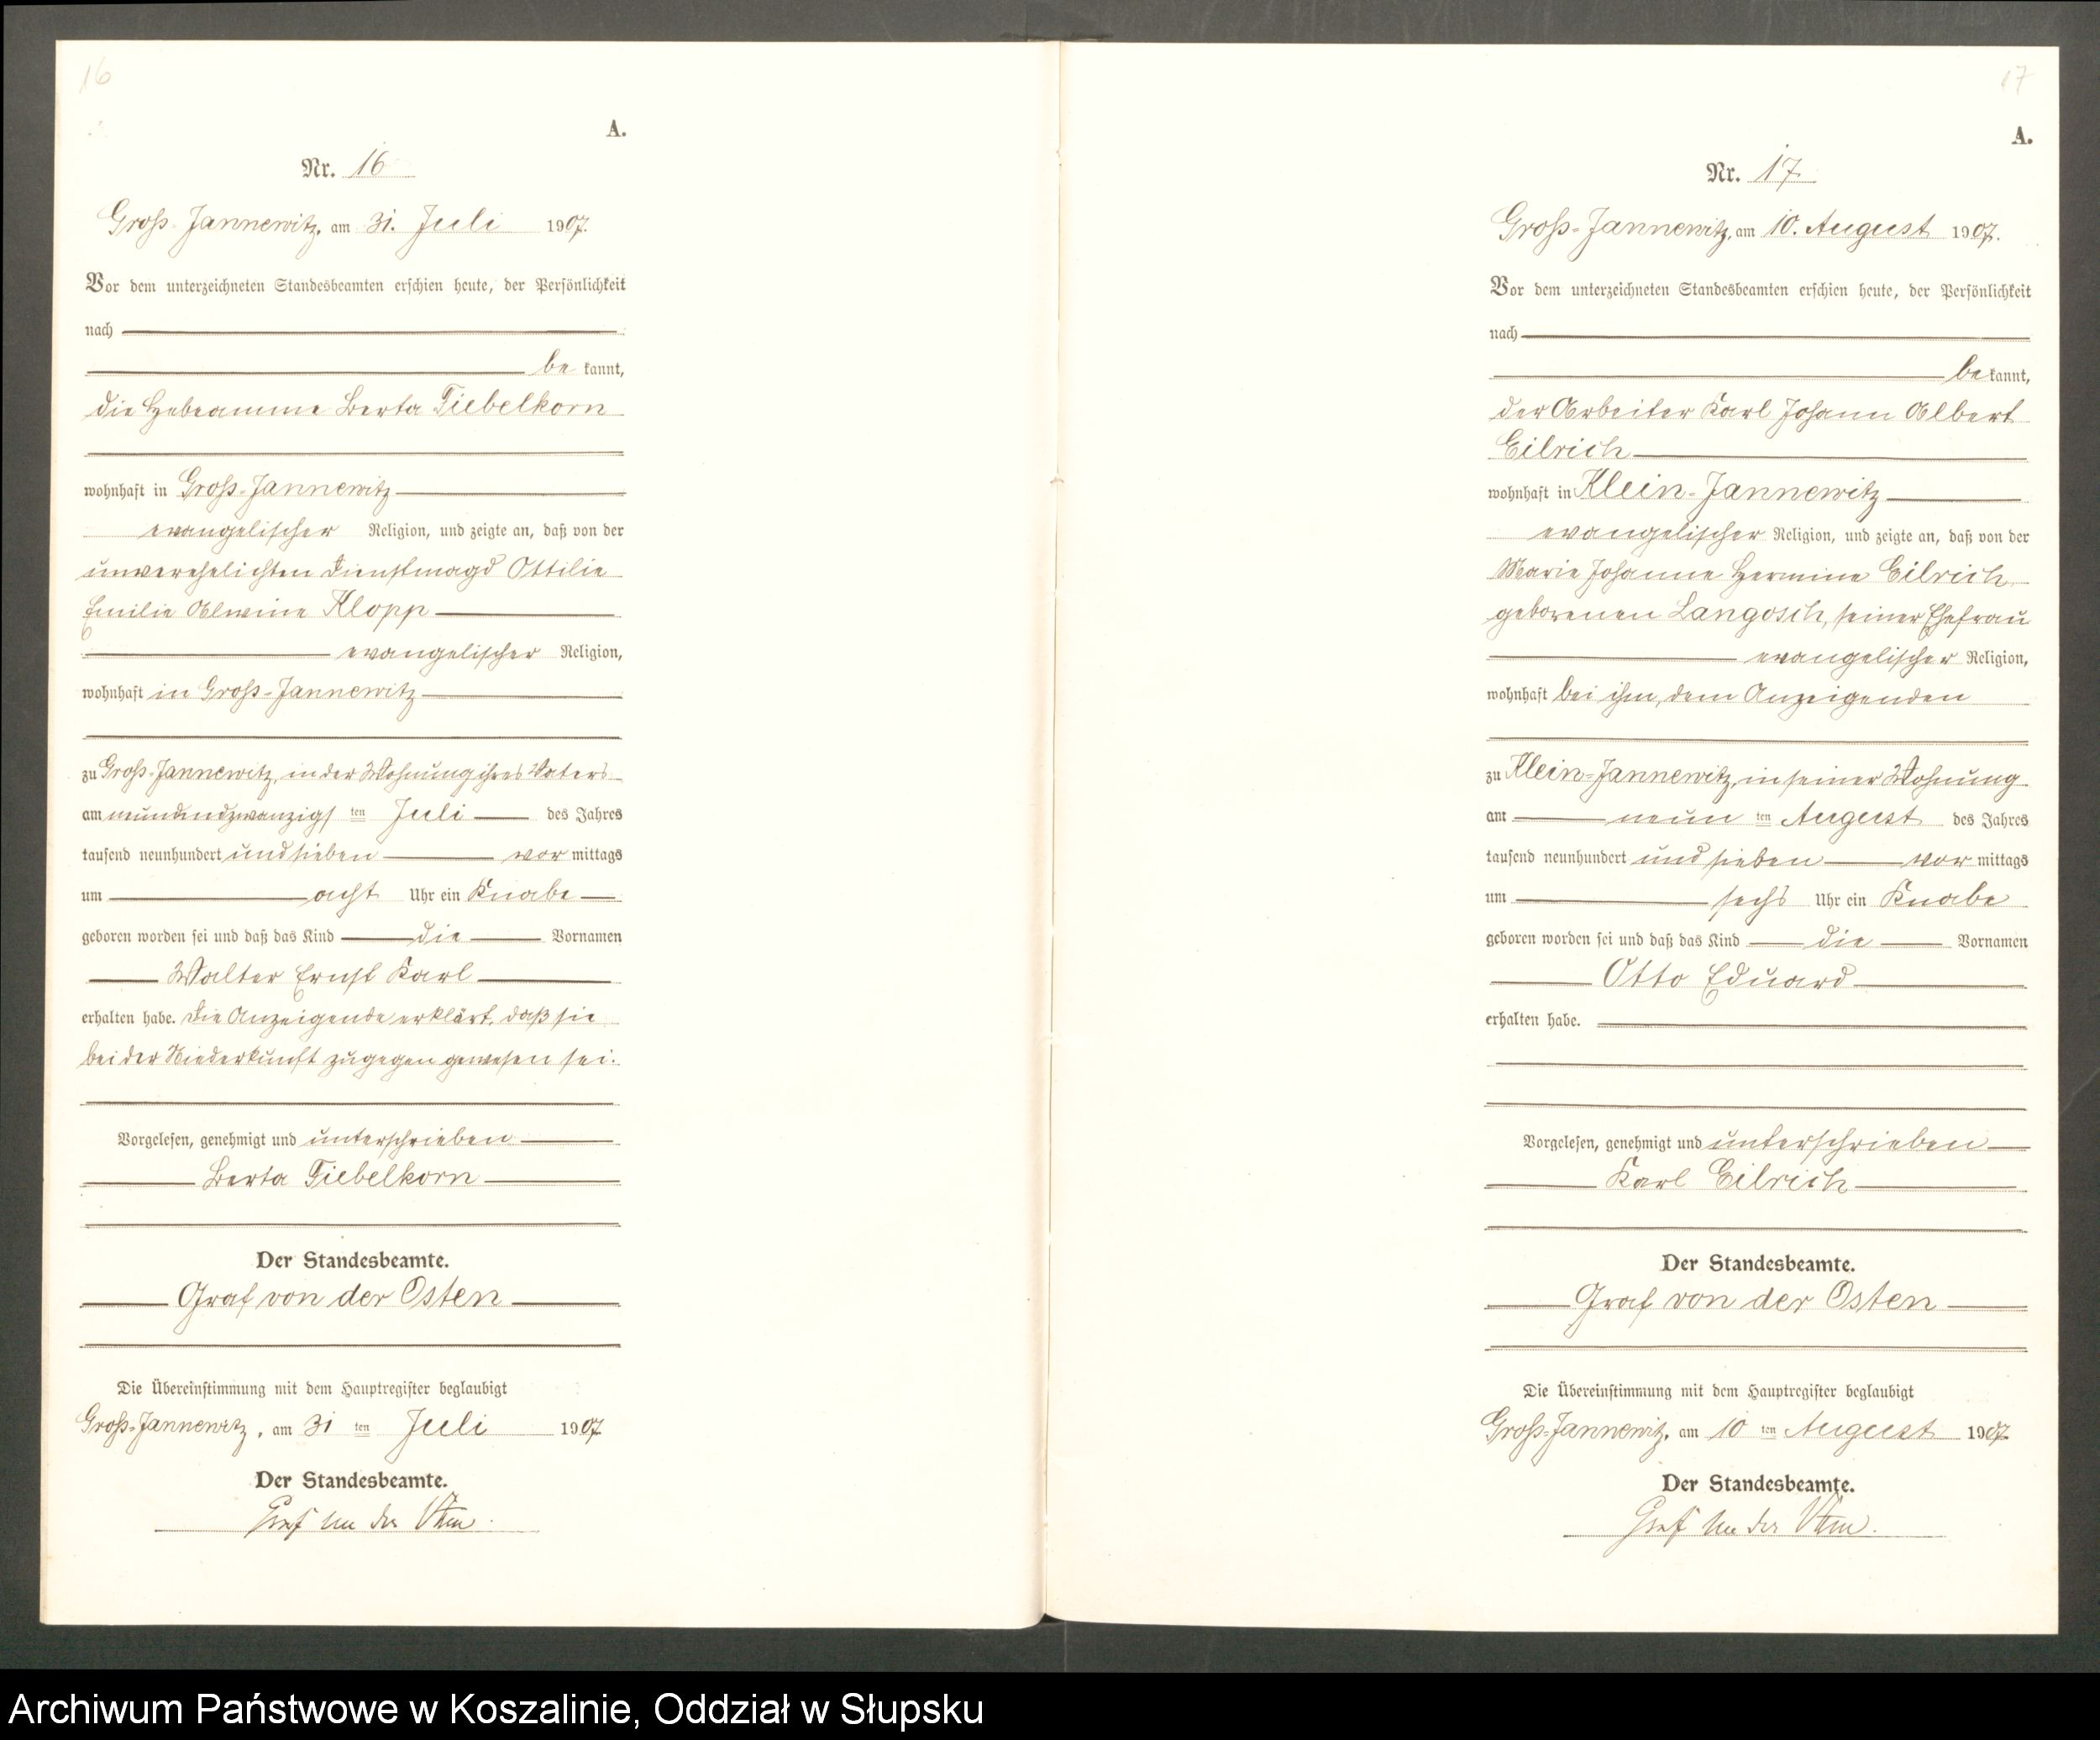 16
A.
Nr. 16
Groß-Jannewitz, am 31. Juli 1907.
Vor dem unterzeichneten Standesbeamten erschien heute, der Persönlichkeit
nach
be kannt,
die Hebeamme Berta Tiebelkorn
wohnhaft in Groß-Jannewitz
evangelischer Religion, und zeigte an, daß von der
unverehelichten Dienstmagd Ottilie
Emilie Alwine Klopp
evangelischer Religion,
wohnhaft in Groß-Jannewitz
zu Groß-Jannewitz, in der Wohnung ihres Vaters
am neunundzwanzigsten Juli des Jahres
tausend neunhundert und sieben vor mittags
um acht Uhr ein Knabe
geboren worden sei und daß das Kind die Vornamen
Walter Ernst Karl
erhalten habe. Die Anzeigende erklärt, daß sie
bei der Niederkunft zugegen gewesen sei.
Vorgelesen, genehmigt und unterschrieben
Berta Tiebelkorn
Der Standesbeamte.
Graf von der Osten
Die Übereinstimmung mit dem Hauptregister beglaubigt
Groß-Jannewitz, am 31 ten Juli 1907
Der Standesbeamte.
Graf von der Osten.
17
A.
Nr. 17.
Groß-Jannewitz, am 10. August 1907.
Vor dem unterzeichneten Standesbeamten erschien heute, der Persönlichkeit
nach
be kannt,
der Arbeiter Karl Johann Albert
Eilrich
wohnhaft in Klein-Jannewitz
evangelischer Religion, und zeigte an, daß von der
Marie Johanne Hermine Eilrich
geborenen Langosch, seiner Ehefrau
evangelischer Religion,
wohnhaft bei ihm, dem Anzeigenden
zu Klein-Jannewitz, in seiner Wohnung
am neun ten August des Jahres
tausend neunhundert und sieben vor mittags
um sechs Uhr ein Knabe
geboren worden sei und daß das Kind die Vornamen
Otto Eduard
erhalten habe.
Vorgelesen, genehmigt und unterschrieben
Karl Eilrich
Der Standesbeamte.
Graf von der Osten
Die Übereinstimmung mit dem Hauptregister beglaubigt
Groß-Jannewitz, am 10 ten August 1907
Der Standesbeamte.
Graf von der Osten.
Archiwum Państwowe w Koszalinie, Oddział w Słupsku